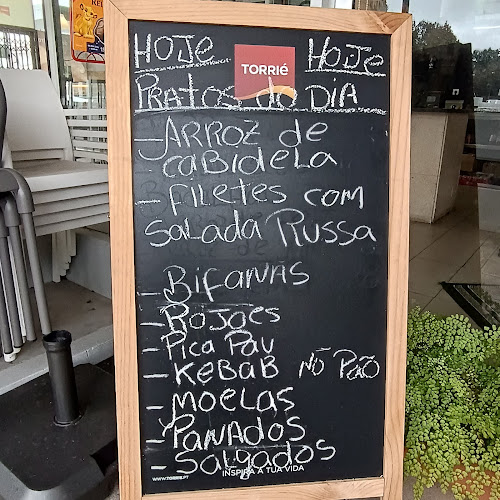 HOJE TORRIÉ HOJE
PRATOS do DIA
- ARROZ de
cabidela
- filetes com
salada Russa
- Bifanas
- Rojoes
- Pica Pau
- KEBAB NÕ PÃO
- MOELAS
- PANADOS
- Salgados
WWW.TORRIE.PT INSPIRA A TUA VIDA